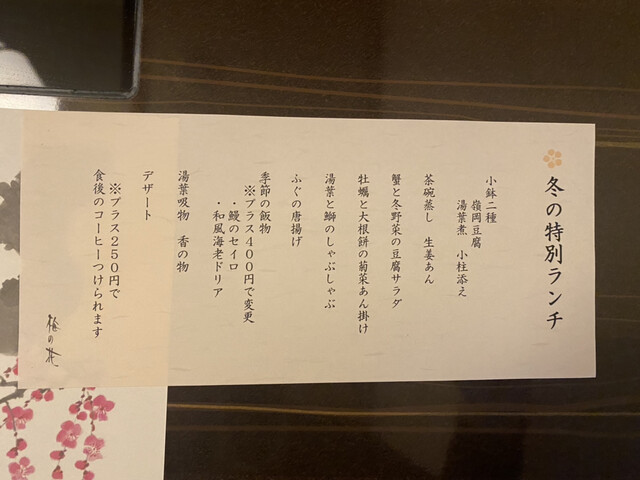 冬の特別ランチ
小鉢二種
嶺岡豆腐
湯葉煮　小柱添え
茶碗蒸し　生姜あん
蟹と冬野菜の豆腐サラダ
牡蠣と大根餅の菊菜あん掛け
湯葉と鰤のしゃぶしゃぶ
ふぐの唐揚げ
季節の飯物
※プラス400円で変更
・鰻のセイロ
・和風海老ドリア
湯葉吸物　香の物
デザート
※プラス250円で
食後のコーヒーつけられます
梅の花